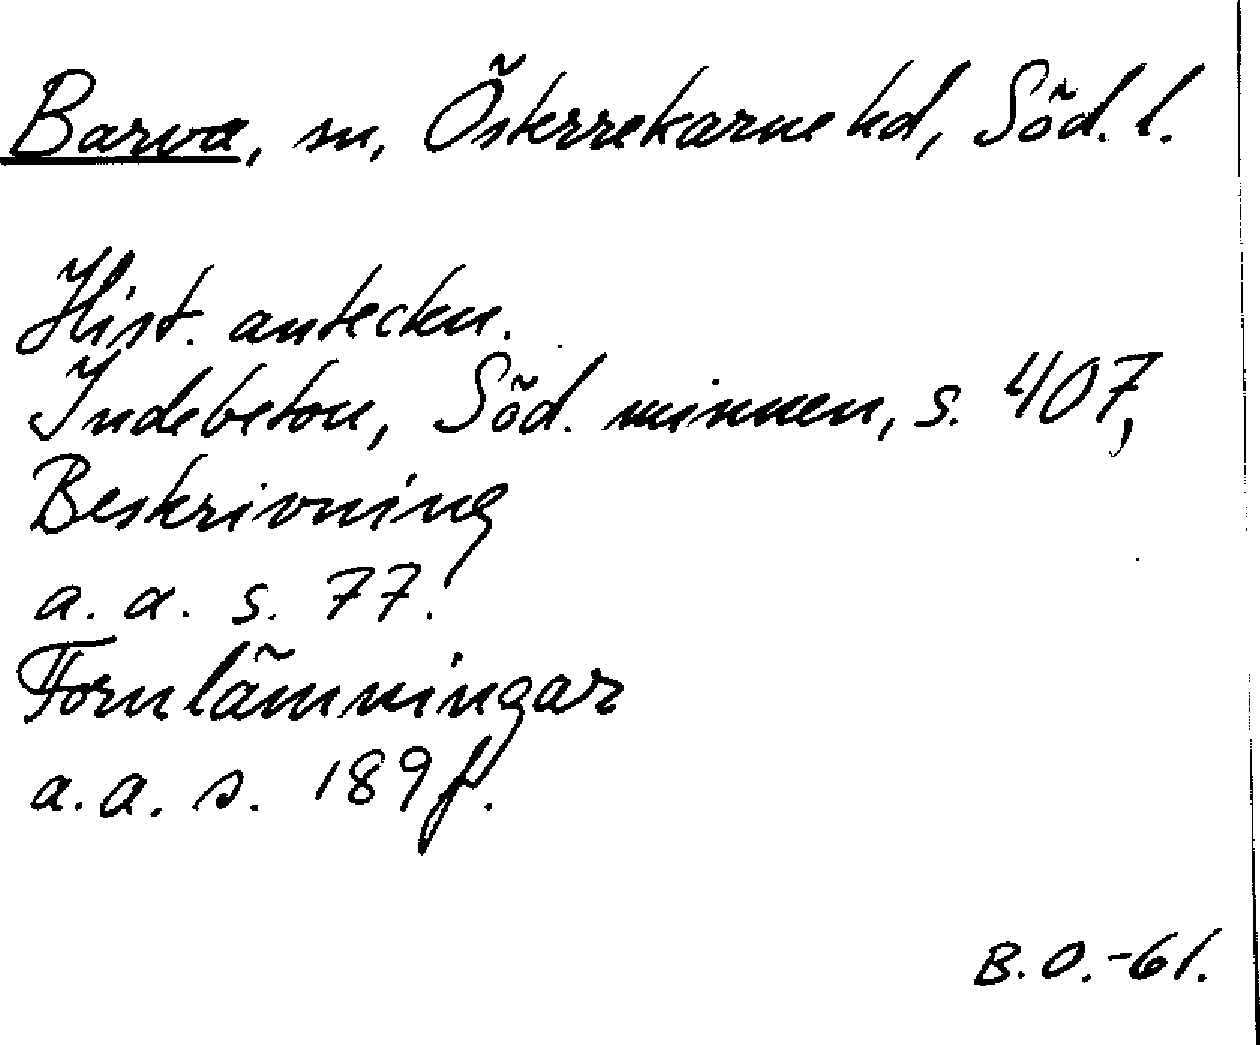 Barva, sn, Österrekarne hd, Söd. l.
Hist. anteckn.
Indebetou, Söd. minnen, s. 407,
Beskrivning
a. a. s. 77.
Fornlämningar
a. a. s. 189 f.
B. O.-61.